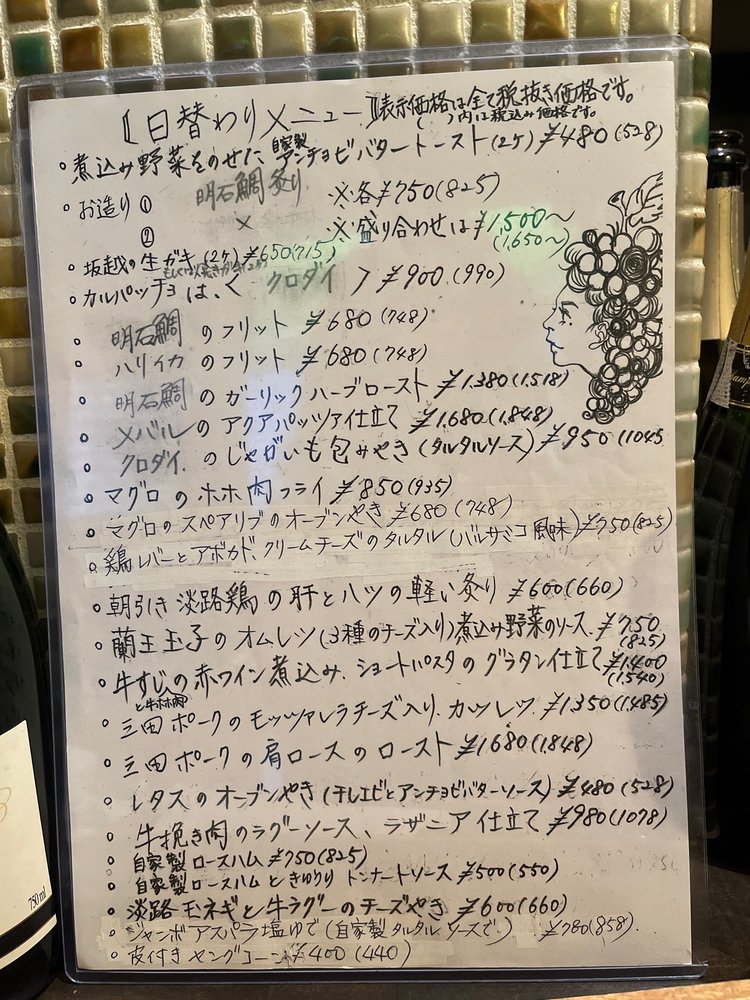 〖日替わりメニュー〗表示価格は全て税抜き価格です。
( )内は税込み価格です。
・煮込み野菜をのせた自家製アンチョビバタートースト(2ケ) ¥480(528)
・お造り ① 明石鯛炙り ※各¥750(825)
② × ※盛り合わせは¥1,500〜
(1,650〜)
・坂越の生ガキ(2ケ)¥650(715)
・カルパッチョは、< クロダイ > ¥900(990)
・明石鯛のフリット ¥680(748)
・ハリイカのフリット ¥680(748)
・明石鯛のガーリックハーブロースト ¥1,380(1,518)
・メバルのアクアパッツァ仕立て ¥1,680(1,848)
・クロダイのじゃがいも包みやき(タルタルソース) ¥950(1045
・マグロのホホ肉フライ ¥850(935)
・マグロのスペアリブのオーブンやき ¥680(748)
・鶏レバーとアボカド、クリームチーズのタルタル(バルサミコ風味) ¥750(825)
・朝引き淡路鶏の肝とハツの軽い炙り ¥600(660)
・蘭王玉子のオムレツ(3種のチーズ入り)煮込み野菜のソース. ¥750
(825)
・牛すじの赤ワイン煮込み、ショートパスタのグラタン仕立て ¥1,400
と牛ホホ肉 (1,540)
・三田ポークのモッツァレラチーズ入り、カツレツ ¥1350(1,485)
・三田ポークの肩ロースのロースト ¥1680(1,848)
・レタスのオーブンやき(干しエビとアンチョビバターソース) ¥480(528)
・牛挽き肉のラグーソース、ラザニア仕立て ¥980(1078)
・自家製ロースハム ¥750(825)
・自家製ロースハムときゅうり トンナートソース ¥500(550)
・淡路玉ネギと牛ラグーのチーズやき ¥600(660)
・ジャンボアスパラ塩ゆで(自家製タルタルソースで) ¥780(858)
・皮付きヤングコーン ¥400(440)
750ml